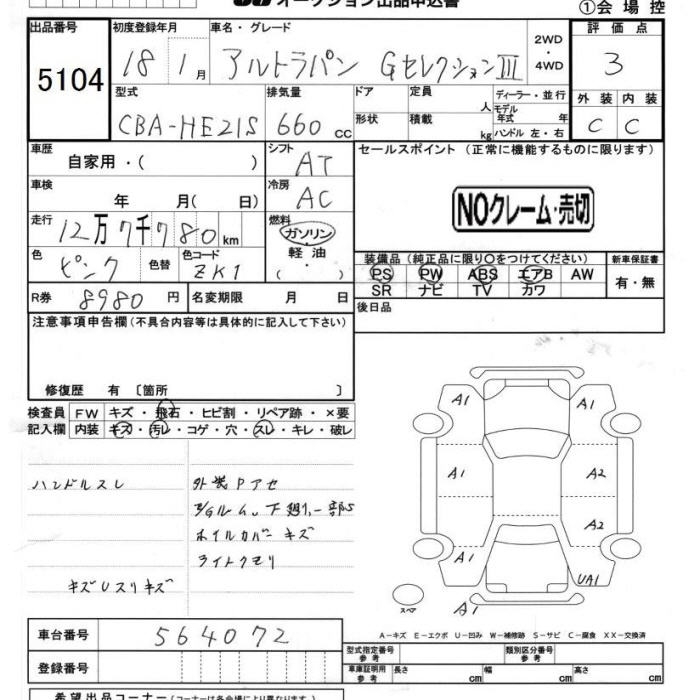 ①会場控
出品番号
5104
初度登録年月
18 1月
車名・グレード
アルトラパン GセレクションⅢ
2WD
・
4WD
評価点
3
型式
CBA-HE21S
排気量
660 cc
ドア
形状
定員
人
積載
kg
ディーラー・並行
モデル
年式 年
ハンドル 左・右
外装 内装
C C
車歴
自家用・( )
シフト
AT
セールスポイント(正常に機能するものに限ります)
NOクレーム・売切
車検
年 月( 日)
冷房
AC
走行
12万7千780km
燃料
ガソリン
・
軽油
( )
色
ピンク
色替
色コード
ZK1
装備品(純正品に限り○をつけてください)
PS PW ABS エアB AW
SR ナビ TV カワ
新車保証書
有・無
R券
8980円
名変期限 月 日
後日品
注意事項申告欄(不具合内容等は具体的に記入して下さい)
修復歴 有〔箇所 〕
検査員
記入欄
FW キズ・飛石・ヒビ割・リペア跡・×要
内装 キズ・汚レ・コゲ・穴・スレ・キレ・破レ
ハンドルスレ
外装Pアセ
ホイルカバーキズ
ライトクモリ
A1
A1
A1
A2
A2
A1
UA1
スペア
A1
A-キズ E-エクボ U-凹み W-補修跡 S-サビ C-腐食 XX-交換済
車台番号
564072
登録番号
型式指定番号
参考
類別区分番号
参考
車庫証明用
参考
長さ cm 幅 cm 高さ cm